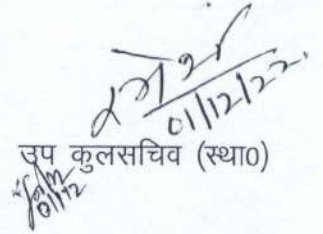 01/12/22
उप कुलसचिव (स्था0)
01/12